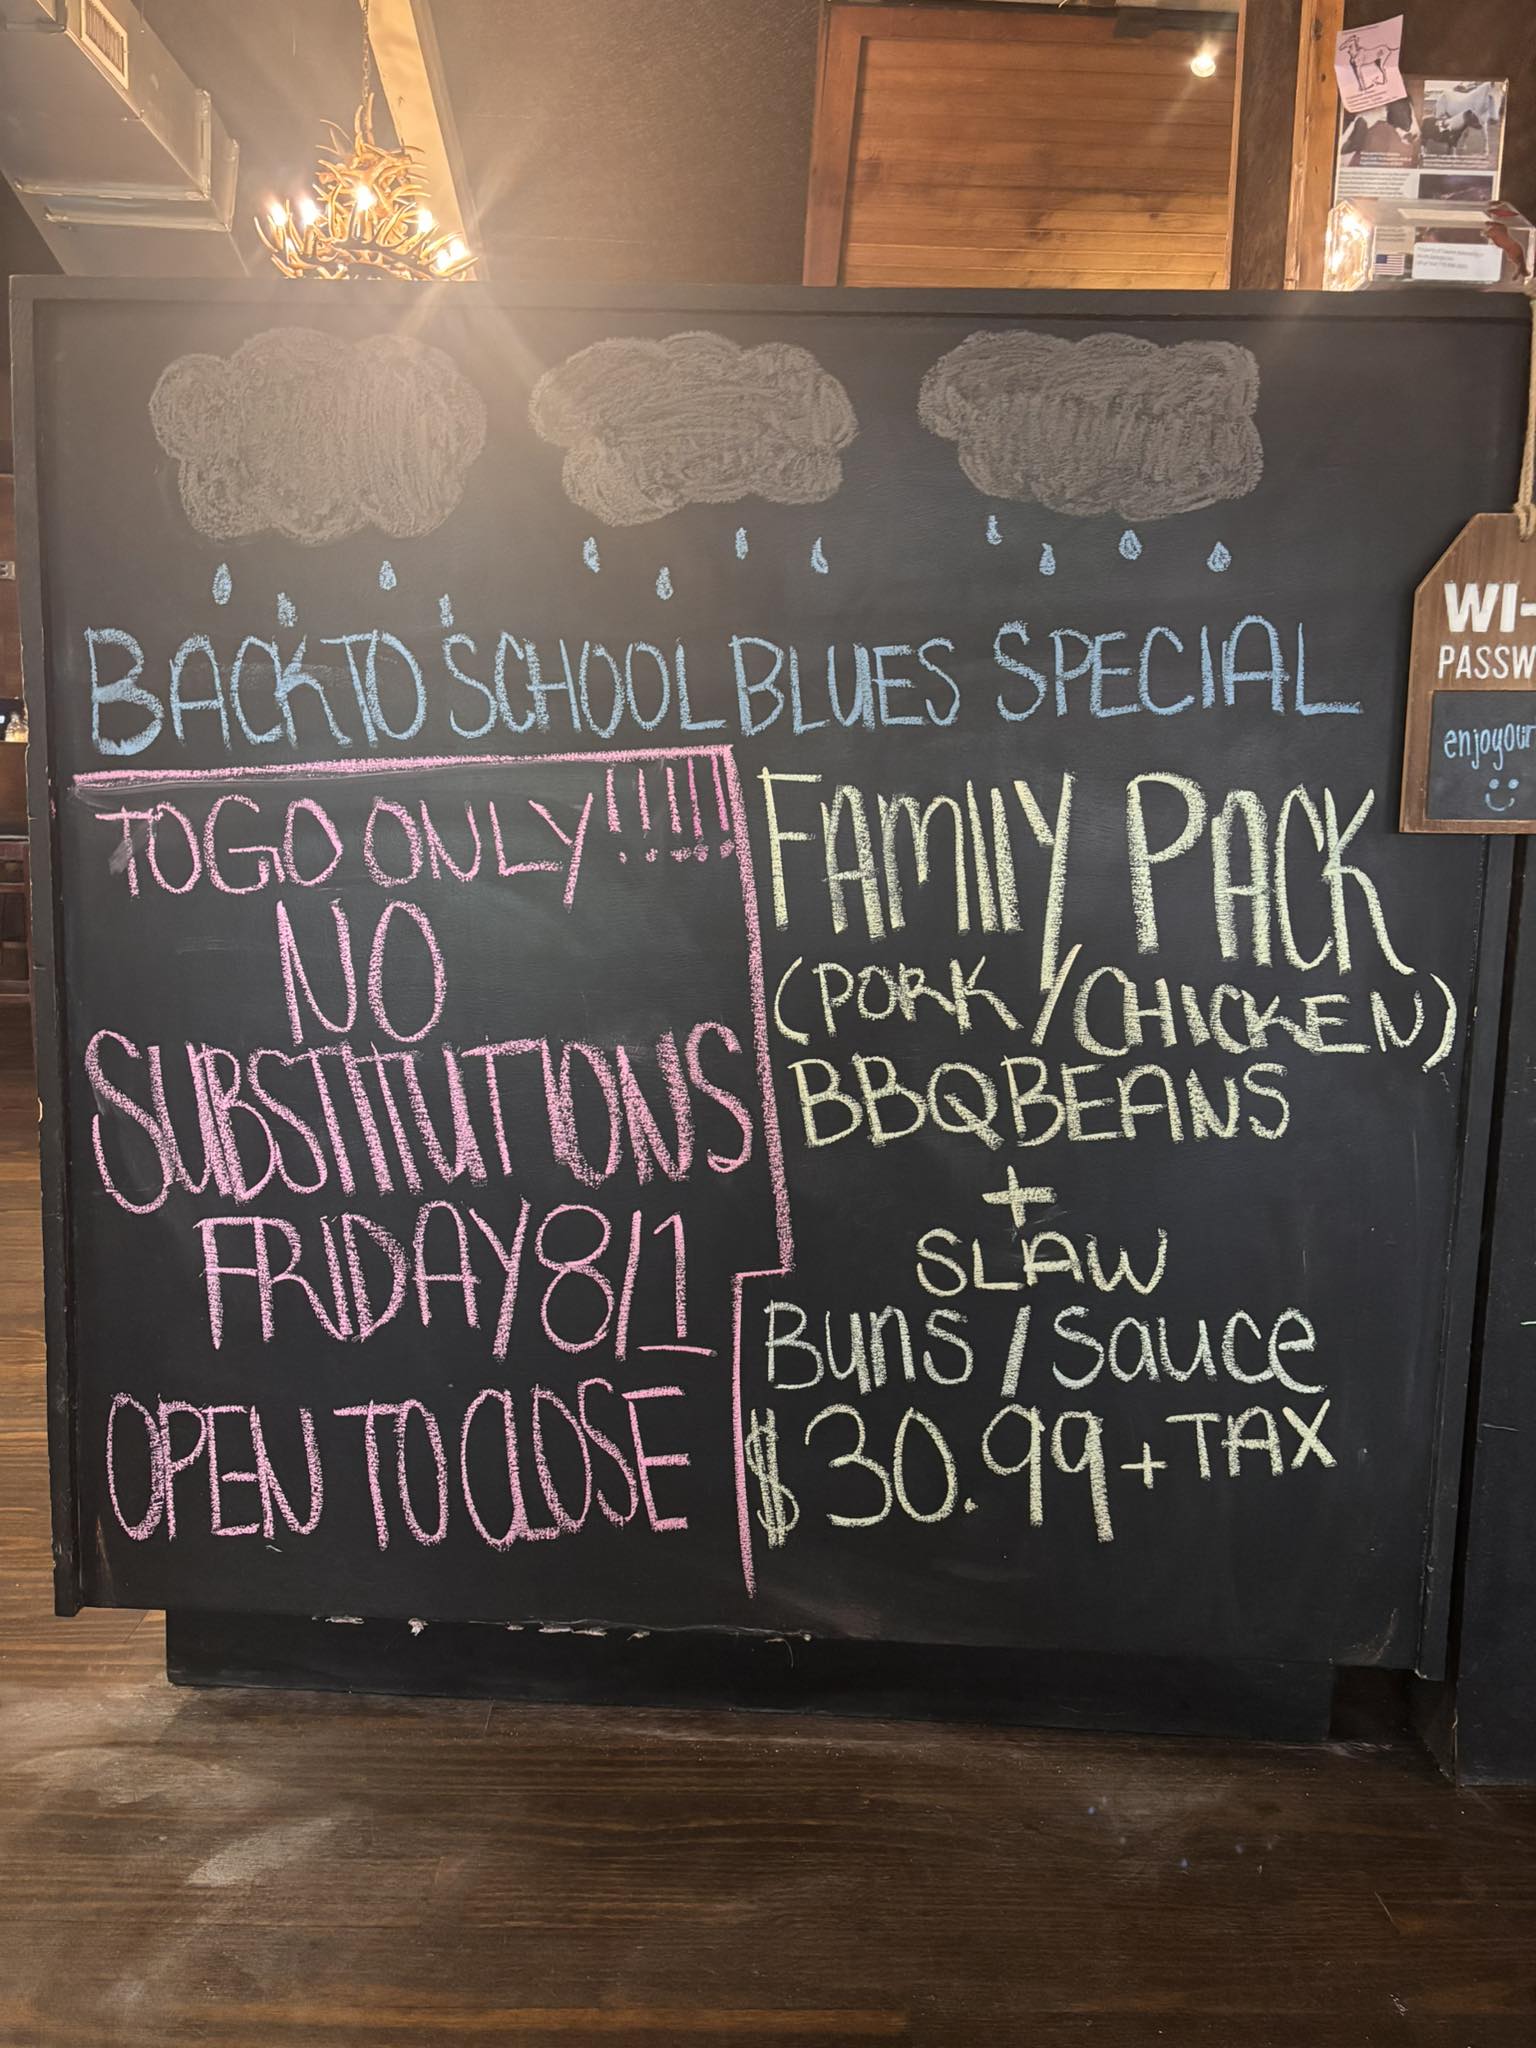 BACK TO SCHOOL BLUES SPECIAL
TO GO ONLY!!!!!
NO
SUBSTITUTIONS
FRIDAY 8/1
OPEN TO CLOSE
FAMIlY PACK
(PORK/CHICKEN)
BBQ BEANS
+
SLAW
BUNS / Sauce
$30.99 + TAX
WI-
PASSW
enjoyour